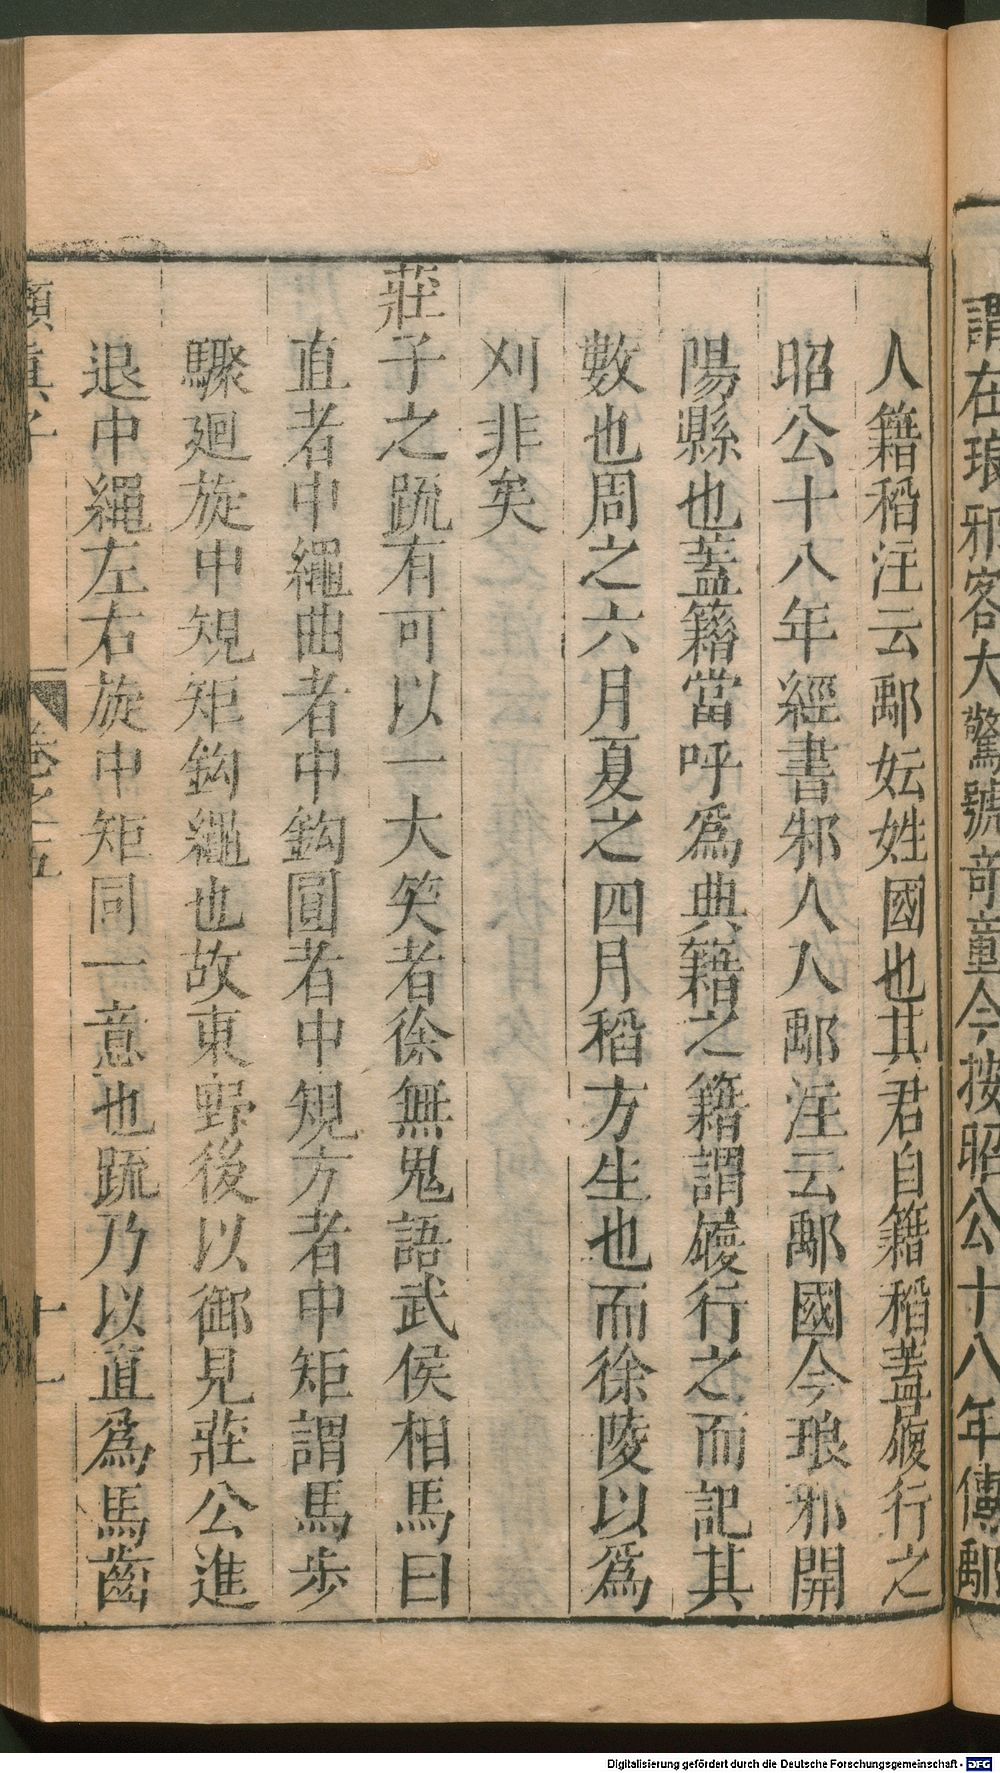 謂在琅邪客大驚號奇童今按昭公十八年傳鄅
人籍稻注云鄅妘姓國也其君自籍稻蓋履行之
昭公十八年經書邾人入鄅注云鄅國今琅邪開
陽縣也蓋籍當呼為典籍之籍謂履行之而記其
數也周之六月夏之四月稻方生也而徐陵以為
刈非矣
莊子之疏有可以一大笑者徐無鬼語武侯相馬曰
直者中繩曲者中鈎圓者中規方者中矩謂馬步
驟廻旋中規矩鈎繩也故東野後以御見莊公進
退中繩左右旋中矩同一意也疏乃以直為馬齒
嬾真子
卷之五
十一
Digitalisierung gefördert durch die Deutsche Forschungsgemeinschaft - DFG